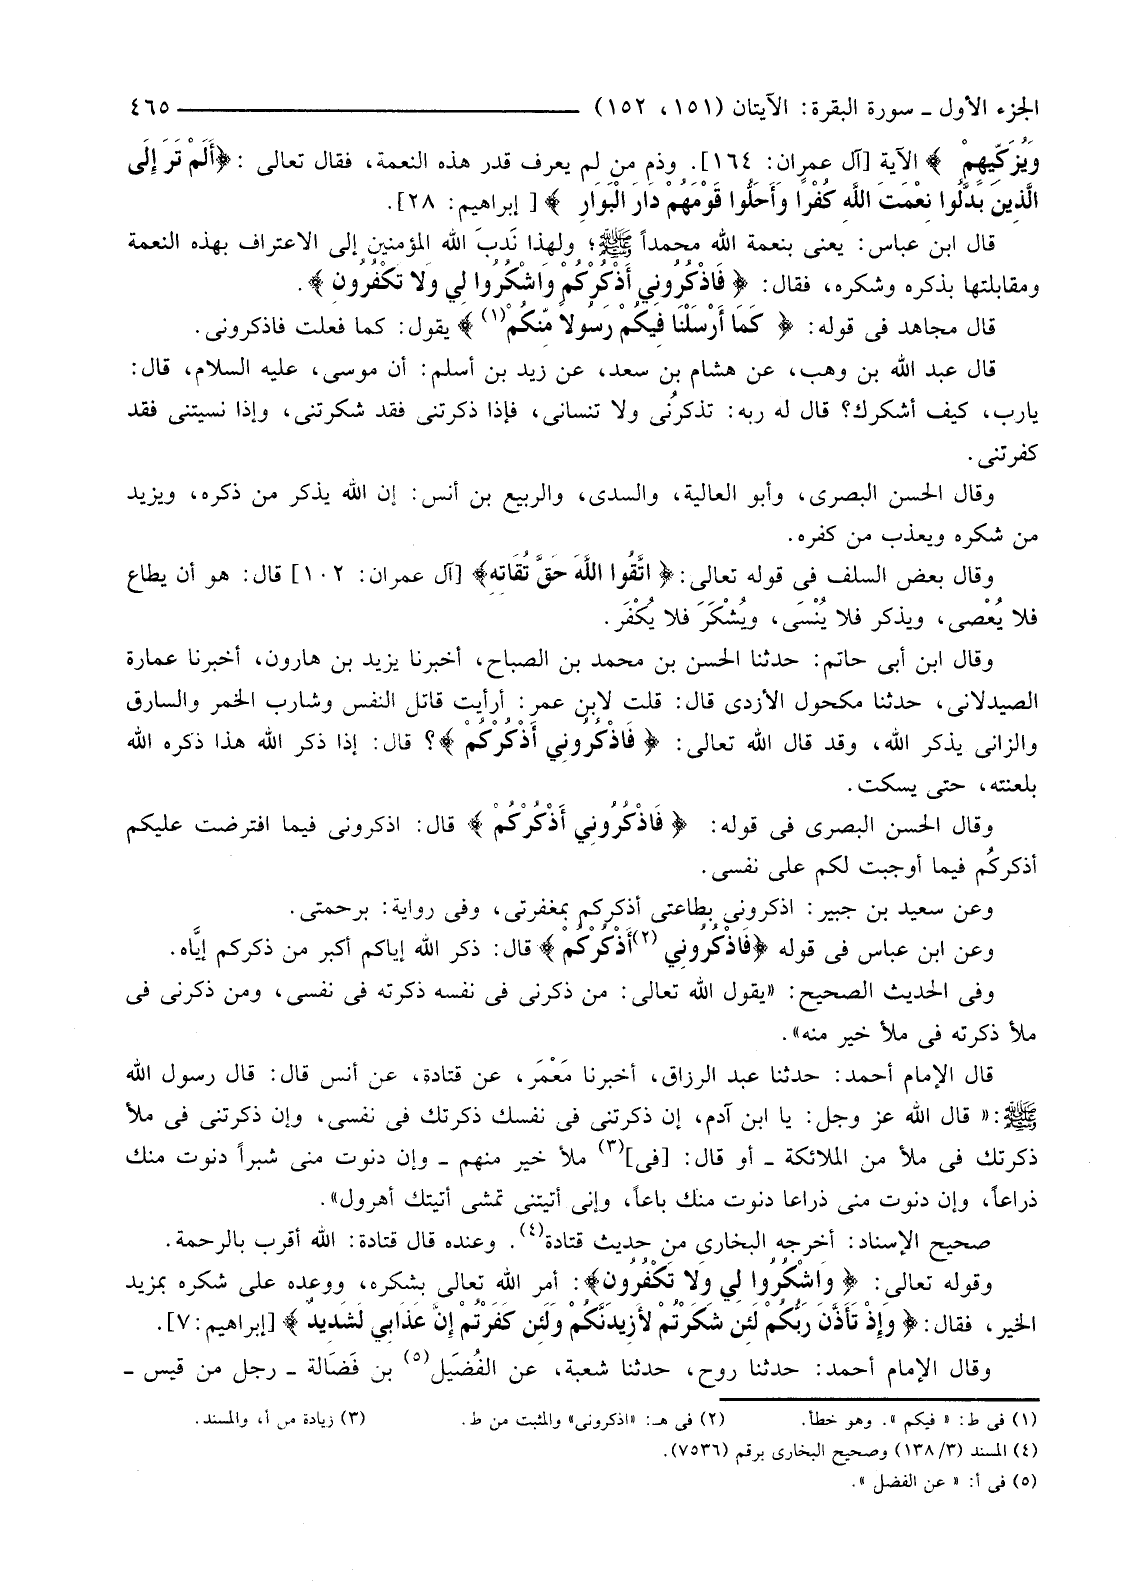 الجزء الأول ـ سورة البقرة: الآيتان (١٥١، ١٥٢) ٤٦٥
وَيُزَكِّيهِمْ ﴾ الآية [آل عمران: ١٦٤]. وذم من لم يعرف قدر هذه النعمة، فقال تعالى :﴿أَلَمْ تَرَ إِلَى
الَّذِينَ بَدَّلُوا نِعْمَتَ اللَّهِ كُفْرًا وَأَحَلُّوا قَوْمَهُمْ دَارَ الْبَوَارِ ﴾ [ إبراهيم: ٢٨].
قال ابن عباس: يعنى بنعمة الله محمداً ﷺ؛ ولهذا نَدبَ الله المؤمنين إلى الاعتراف بهذه النعمة
ومقابلتها بذكره وشكره، فقال: ﴿ فَاذْكُرُونِي أَذْكُرْكُمْ وَاشْكُرُوا لِي وَلا تَكْفُرُونِ ﴾.
قال مجاهد فى قوله: ﴿ كَمَا أَرْسَلْنَا فِيكُمْ رَسُولاً مِّنكُمْ(١) ﴾ يقول: كما فعلت فاذكرونى.
قال عبد الله بن وهب، عن هشام بن سعد، عن زيد بن أسلم: أن موسى، عليه السلام، قال:
يارب، كيف أشكرك؟ قال له ربه: تذكرُنى ولا تنسانى، فإذا ذكرتنى فقد شكرتنى، وإذا نسيتنى فقد
كفرتنى.
وقال الحسن البصرى، وأبو العالية، والسدى، والربيع بن أنس: إن الله يذكر من ذكره، ويزيد
من شكره ويعذب من كفره.
وقال بعض السلف فى قوله تعالى:﴿ اتَّقُوا اللَّهَ حَقَّ تُقَاتِهِ﴾ [آل عمران: ١٠٢] قال: هو أن يطاع
فلا يُعْصى، ويذكر فلا يُنْسَى، ويُشْكَرَ فلا يُكْفَر.
وقال ابن أبى حاتم: حدثنا الحسن بن محمد بن الصباح، أخبرنا يزيد بن هارون، أخبرنا عمارة
الصيدلانى، حدثنا مكحول الأزدى قال: قلت لابن عمر: أرأيت قاتل النفس وشارب الخمر والسارق
والزانى يذكر الله، وقد قال الله تعالى: ﴿ فَاذْكُرُونِي أَذْكُرْكُمْ ﴾؟ قال: إذا ذكر الله هذا ذكره الله
بلعنته، حتى يسكت.
وقال الحسن البصرى فى قوله: ﴿ فَاذْكُرُونِي أَذْكُرْكُمْ ﴾ قال: اذكرونى فيما افترضت عليكم
أذكركُم فيما أوجبت لكم على نفسى.
وعن سعيد بن جبير: اذكرونى بطاعتى أذكركم بمغفرتى، وفى رواية: برحمتى.
وعن ابن عباس فى قوله ﴿فَاذْكُرُونِي (٢)أَذْكُرْكُمْ ﴾ قال: ذكر الله إياكم أكبر من ذكركم إيَّاه.
وفى الحديث الصحيح: «يقول الله تعالى: من ذكرنى فى نفسه ذكرته فى نفسى، ومن ذكرنى فى
ملأ ذكرته فى ملأ خير منه».
قال الإمام أحمد: حدثنا عبد الرزاق، أخبرنا مَعْمَر، عن قتادة، عن أنس قال: قال رسول الله
ﷺ:« قال الله عز وجل: يا ابن آدم، إن ذكرتنى فى نفسك ذكرتك فى نفسى، وإن ذكرتنى فى ملأ
ذكرتك فى ملأ من الملائكة ـ أو قال: [فى](٣) ملأ خير منهم ـ وإن دنوت منى شبراً دنوت منك
ذراعاً، وإن دنوت منى ذراعا دنوت منك باعاً، وإنى أتيتنى تمشى أتيتك أهرول».
صحيح الإسناد: أخرجه البخارى من حديث قتادة(٤). وعنده قال قتادة: الله أقرب بالرحمة.
وقوله تعالى: ﴿ وَاشْكُرُوا لِي وَلا تَكْفُرُونِ﴾: أمر الله تعالى بشكره، ووعده على شكره بمزيد
الخير، فقال:﴿ وَإِذْ تَأَذَّنَ رَبُّكُمْ لَئِن شَكَرْتُمْ لأَزِيدَنَّكُمْ وَلَئِن كَفَرْتُمْ إِنَّ عَذَابِي لَشَدِيدٌ ﴾ [إبراهيم:٧].
وقال الإمام أحمد: حدثنا روح، حدثنا شعبة، عن الفُضَيل(٥) بن فَضَالة ـ رجل من قيس ـ
(١) فى ط: « فيكم ». وهو خطأ. (٢) فى هـ: «اذكرونى» والمثبت من ط. (٣) زيادة من أ، والمسند.
(٤) المسند (١٣٨/٣) وصحيح البخارى برقم (٧٥٣٦).
(٥) فى أ: « عن الفضل ».